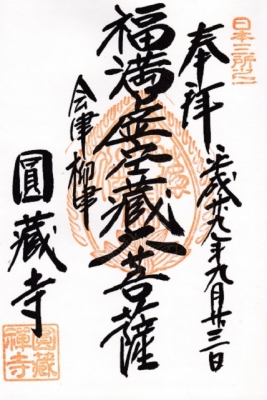 日本三所之一
奉拝
平成廿九年九月廿三日
福満虚空蔵大菩薩
会津柳津
圓蔵寺
圓蔵
禅寺